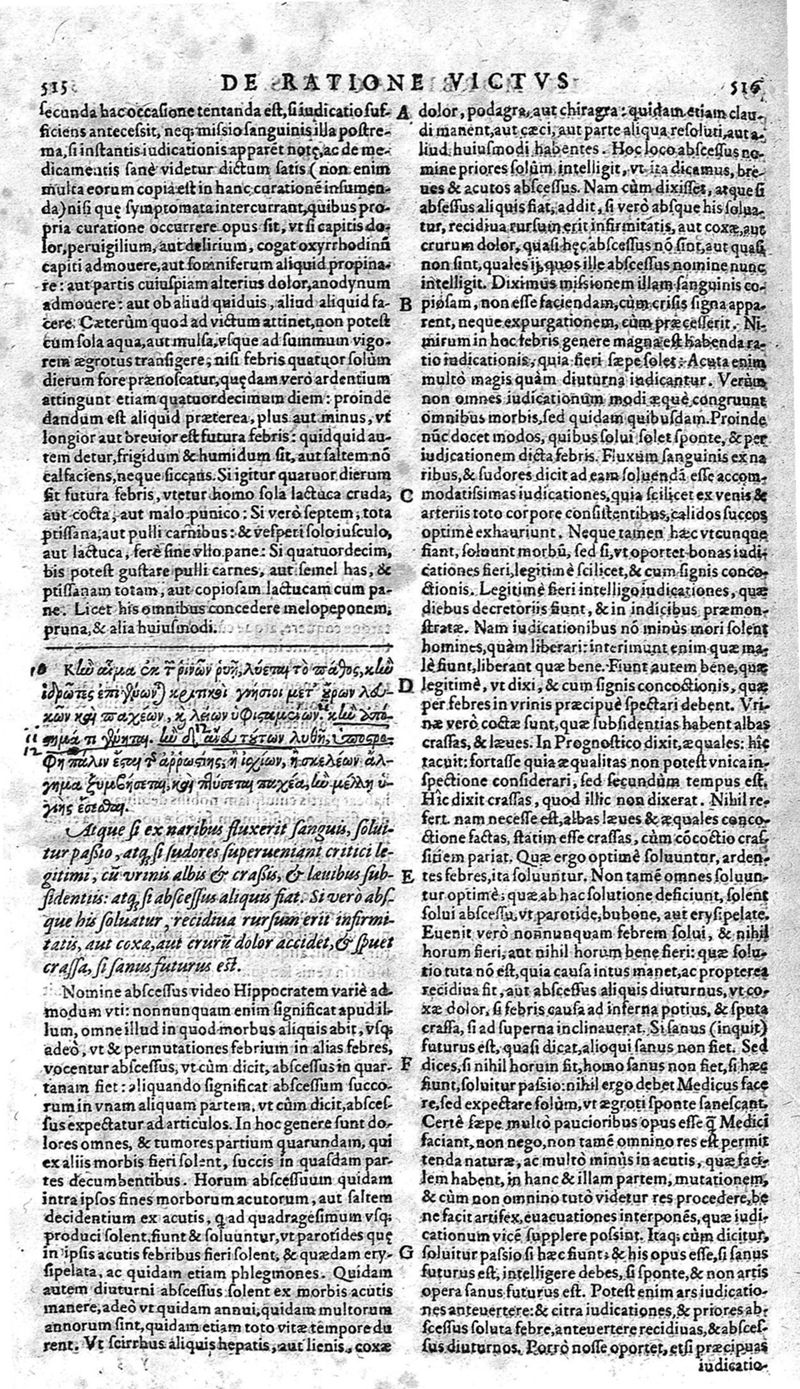 515
DE RATIONE VICTVS
516
secunda hac occasione tentanda est, si iudicatio suf-
ficiens antecessit, neq; missio sanguinis illa postre-
ma, si instantis iudicationis apparēt notę, ac de me-
dicamentis sanè videtur dictum satis (non enim
multa eorum copia est in hanc curationē insumen-
da) nisi quę symptomata intercurrant, quibus pro-
pria curatione occurrere opus sit, vt si capitis do-
lor, peruigilium, aut delirium, cogat oxyrrhodinū
capiti admouere, aut somniferum aliquid propina-
re: aut partis cuiuspiam alterius dolor, anodynum
admouere: aut ob aliud quiduis, aliud aliquid fa-
cere. Cæterùm quod ad victum attinet, non potest
cum sola aqua, aut mulsa, vsque ad summum vigo-
rem ægrotus transigere; nisi febris quatuor solùm
dierum fore prænoscatur, quędam verò ardentium
attingunt etiam quatuordecimum diem: proinde
dandum est aliquid præterea, plus aut minus, vt
longior aut breuior est futura febris: quidquid au-
tem detur, frigidum & humidum sit, aut saltem nō
calfaciens, neque siccans. Si igitur quatuor dierum
sit futura febris, vtetur homo sola lactuca cruda,
aut cocta, aut malo punico: Si verò septem, tota
ptissana, aut pulli carnibus: & vesperi solo iusculo,
aut lactuca, ferè sine vllo pane: Si quatuordecim,
bis potest gustare pulli carnes, aut semel has, &
ptissanam totam, aut copiosam lactucam cum pa-
ne. Licet his omnibus concedere melopeponem,
pruna, & alia huiusmodi.
10 Κἢν αἷμα ἐκ τ ῥινῶν ῥυῇ, λύεται τὸ πάθος, κἢν
ἱδρῶτες ἐπιγένων) κριτικοὶ γνήσιοι μετ' οὔρων λευ-
κῶν καὶ παχέων, κ λείων ὑφισταμένων, κἢν ἀπό-
11 στημά τι γένηται. ἢν δ' 12 ἄνευ τούτων λυθῇ, ὑποστρο-
12 φὴ πάλιν ἔσται τ ἀρρωστίης, ἢ ἰσχίων, ἢ σκελέων ἄλ-
γημα ξυμβήσεται, καὶ πτύσεται παχέα, ἢν μέλλῃ ὑ-
γιὴς ἔσεσθαι.
Atque si ex naribus fluxerit sanguis, solui-
tur passio, atq; si sudores superueniant critici le-
gitimi, cū vrinis albis & crassis, & læuibus sub-
sidentiis: atq; si abscessus aliquis fiat. Si verò abs-
que his soluatur, recidiua rursum erit infirmi-
tatis, aut coxæ, aut crurū dolor accidet, & spuet
crassa, si sanus futurus est.
Nomine abscessus video Hippocratem variè ad-
modum vti: nonnunquam enim significat apud il-
lum, omne illud in quod morbus aliquis abit, vsq;
adeò, vt & permutationes febrium in alias febres,
vocentur abscessus, vt cùm dicit, abscessus in quar-
tanam fiet: aliquando significat abscessum succo-
rum in vnam aliquam partem, vt cùm dicit, absces-
sus expectatur ad articulos. In hoc genere sunt do-
lores omnes, & tumores partium quarundam, qui
ex aliis morbis fieri solent, succis in quasdam par-
tes decumbentibus. Horum abscessuum quidam
intra ipsos fines morborum acutorum, aut saltem
decidentium ex acutis, q ad quadragesimum vsq;
produci solent, fiunt & soluuntur, vt parotides quę
in ipsis acutis febribus fieri solent, & quædam ery-
sipelata, ac quidam etiam phlegmones. Quidam
autem diuturni abscessus solent ex morbis acutis
manere, adeò vt quidam annui, quidam multorum
annorum sint, quidam etiam toto vitæ tēpore du-
rent. Vt scirrhus aliquis hepatis, aut lienis, coxæ
A dolor, podagra, aut chiragra: quidam etiam clau-
di manent, aut cæci, aut parte aliqua resoluti, aut a-
liud huiusmodi habentes. Hoc loco abscessus no-
mine priores solùm intelligit, vt ita dicamus, bre-
ues & acutos abscessus. Nam cùm dixisset, atque si
abscessus aliquis fiat, addit, si verò absque his solua-
tur, recidiua rursum erit infirmitatis, aut coxæ, aut
crurum dolor, quasi hęc abscessus nō sint, aut quasi
non sint, quales ij, quos ille abscessus nomine nunc
intelligit. Diximus missionem illam sanguinis co-
B piosam, non esse faciendam, cùm crisis signa appa-
rent, neque expurgationem, cùm præcesserit. Ni-
mirum in hoc febris genere magna est habenda ra-
tio iudicationis, quia fieri sæpe solet: Acuta enim
multò magis quàm diuturna iudicantur. Verùm
non omnes iudicationum modi æquè congruunt
omnibus morbis, sed quidam quibusdam. Proinde
nūc docet modos, quibus solui solet sponte, & per
iudicationem dicta febris. Fluxum sanguinis ex na-
ribus, & sudores dicit ad eam soluendā esse accom-
C modatissimas iudicationes, quia scilicet ex venis &
arteriis toto corpore consistentibus, calidos succos
optimè exhauriunt. Neque tamen hæc vtcunque
fiant, soluunt morbū, sed si, vt oportet bonas iudi-
cationes fieri, legitimè scilicet, & cum signis conco-
ctionis. Legitimè fieri intelligo iudicationes, quæ
diebus decretoriis fiunt, & in indicibus præmon-
stratæ. Nam iudicationibus nō minùs mori solent
homines, quàm liberari: interimunt enim quæ ma-
lè fiunt, liberant quæ bene. Fiunt autem bene, quæ
D legitimè, vt dixi, & cum signis concoctionis, quæ
per febres in vrinis præcipuè spectari debent. Vri-
næ verò coctæ sunt, quæ subsidentias habent albas
crassas, & læues. In Prognostico dixit, æquales: hîc
tacuit: fortasse quia æqualitas non potest vnica in-
spectione considerari, sed secundùm tempus est.
Hîc dixit crassas, quod illic non dixerat. Nihil re-
fert. nam necesse est, albas læues & æquales conco-
ctione factas, statim esse crassas, cùm cōcoctio cras-
sitiem pariat. Quæ ergo optimè soluuntur, arden-
E tes febres, ita soluuntur. Non tamē omnes soluun-
tur optimè: quæ ab hac solutione deficiunt, solent
solui abscessu, vt parotide, bubone, aut erysipelate.
Euenit verò nonnunquam febrem solui, & nihil
horum fieri, aut nihil horum bene fieri: quæ solu-
tio tuta nō est, quia causa intus manet, ac propterea
recidiua fit, aut abscessus aliquis diuturnus, vt co-
xæ dolor, si febris causa ad inferna potius, & sputa
crassa, si ad superna inclinauerat. Si sanus (inquit)
futurus est, quasi dicat, alioqui sanus non fiet. Sed
F dices, si nihil horum fit, homo sanus non fiet, si hæc
fiunt, soluitur passio: nihil ergo debet Medicus face
re, sed expectare solùm, vt ægroti sponte sanescant.
Certè sæpe multò paucioribus opus esse q̄ Medici
faciant, non nego, non tamē omnino res est permit
tenda naturæ, ac multò minùs in acutis, quæ faci-
lem habent, in hanc & illam partem, mutationem,
& cùm non omnino tutò videtur res procedere, be
ne facit artifex, euacuationes interponēs, quæ iudi-
cationum vicē supplere possint. Itaq; cùm dicitur,
G soluitur passio si hæc fiunt, & his opus esse, si sanus
futurus est, intelligere debes, si sponte, & non artis
opera sanus futurus est. Potest enim ars iudicatio-
nes anteuertere: & citra iudicationes, & priores ab-
scessus soluta febre, anteuertere recidiuas, & absces-
sus diuturnos. Porrò nosse oportet, etsi præcipuas
iudicatio-